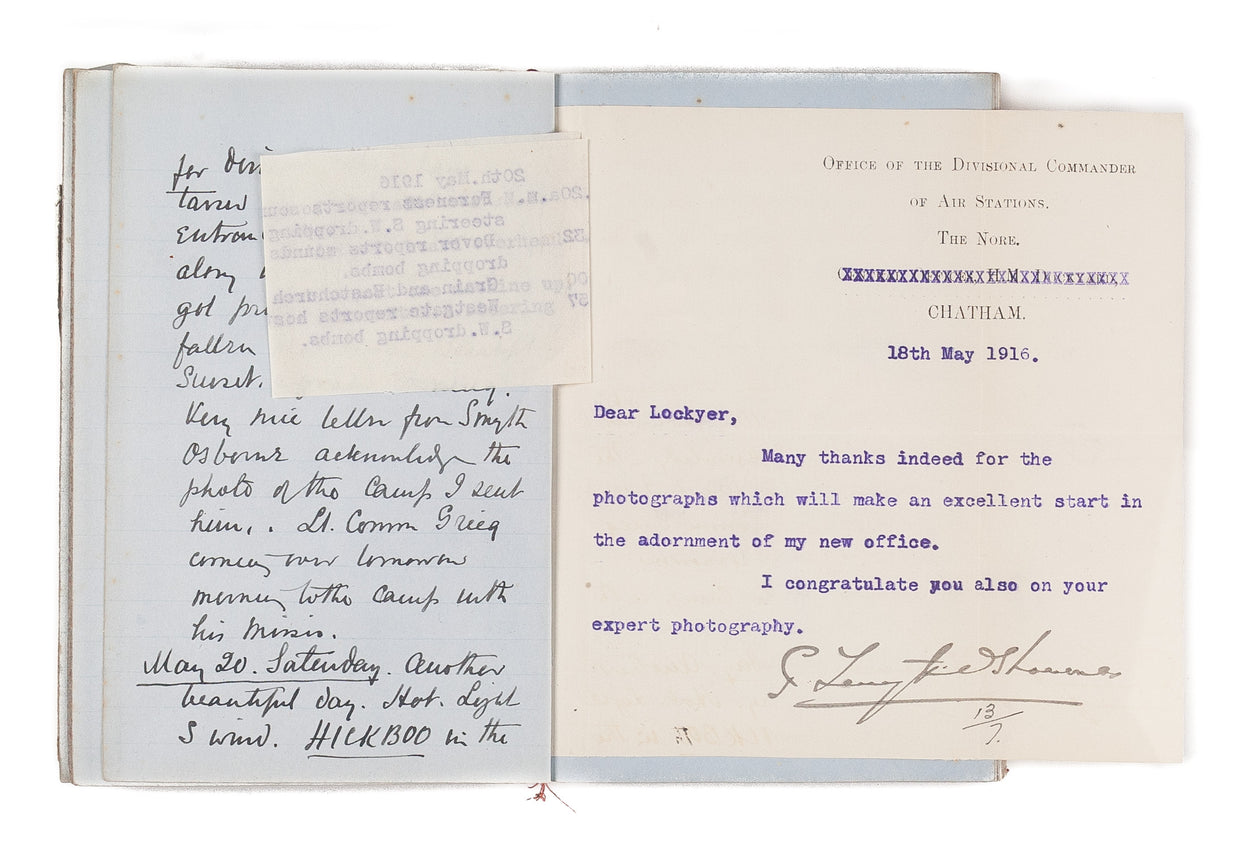 for
tavern
Entran
along
got
fallen
Sunset.
Very nice letter from Smyth
Osbourne acknowledge the
photo of the Camp I sent
him, . Lt. Comm Grieg
coming over tomorrow
morning to the Camp with
his Missis.
May 20. Saturday. Another
beautiful day. Hot. Light
S wind. HICKBOO in the
20th.May 1916
.20a.m. Foreness reports
steering S.W.dropping
Dover reports sounds
dropping bombs.
Grain and Eastchurch
57 Westgate reports hos
S.W.dropping bombs.
OFFICE OF THE DIVISIONAL COMMANDER
OF AIR STATIONS,
THE NORE,
CHATHAM.
18th May 1916.
Dear Lockyer,
Many thanks indeed for the
photographs which will make an excellent start in
the adornment of my new office.
I congratulate you also on your
expert photography.
13/7.